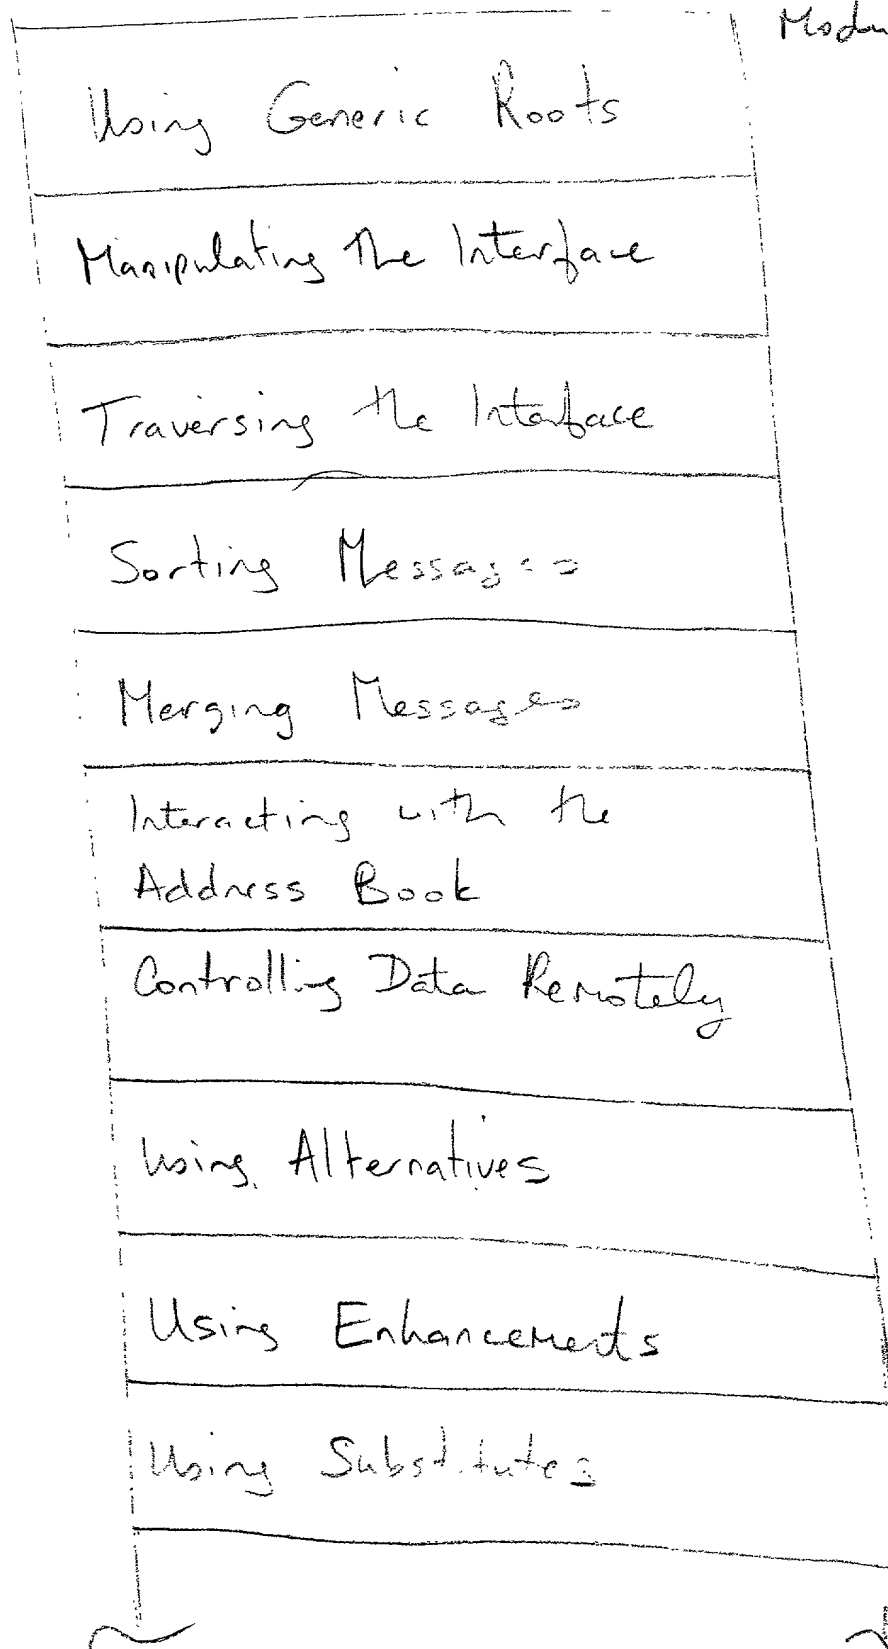 Using Generic Roots
Manipulating the Interface
Traversing the Interface
Sorting Messages
Merging Messages
Interacting with the
Address Book
Controlling Data Remotely
Using Alternatives
Using Enhancements
Using Substitutes